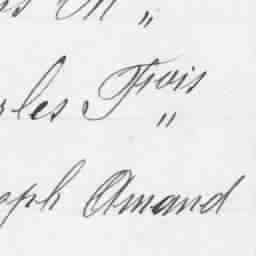 rles Frois
"
oph Amand